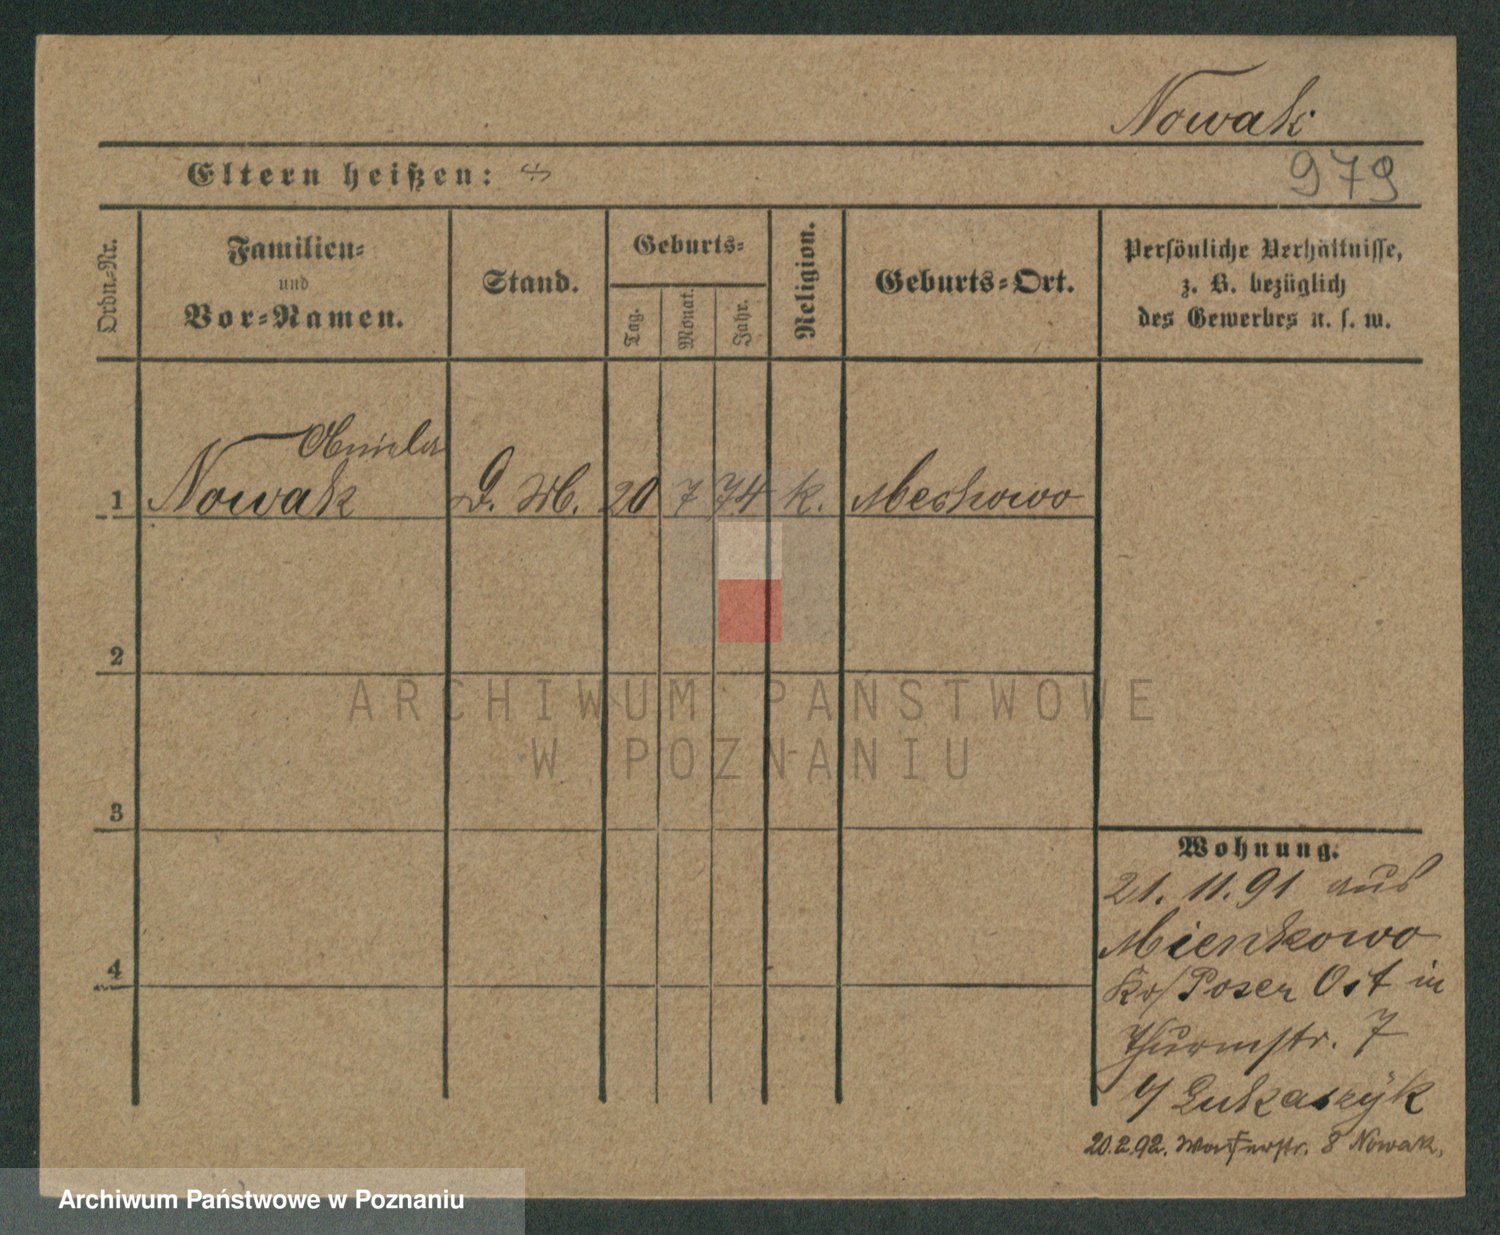 Nowak
Eltern heißen:
979
Ordn.-Nr.
Familien-
und
Vor-Namen.
Stand.
Geburts-
Tag.
Monat.
Jahr.
Religion.
Geburts-Ort.
Persönliche Verhältnisse,
z. B. bezüglich
des Gewerbes u. s. w.
1 Nowak D. M. 20 7 74 k.
2
ARCHIWUM PAŃSTWOWE
W POZNANIU
3
Wohnung.
21. 11. 91 aus
Mienkowo
Kr/ Posen Ost in
4
Thurmstr. 7
b/ Lukaszyk
20.2.92. 8 Nowak.
Archiwum Państwowe w Poznaniu